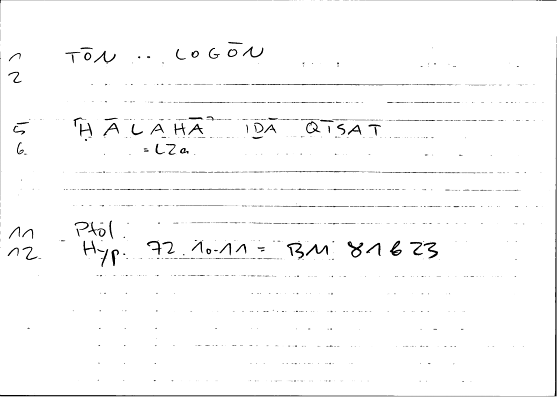 1 TŌN .. LOGŌN
2
5 ⸢ḤĀLAHĀ⸣ IḎĀ QĪSAT
6 = LZa
11 Ptol.
12 Hyp. 72.10-11 = BM 81623